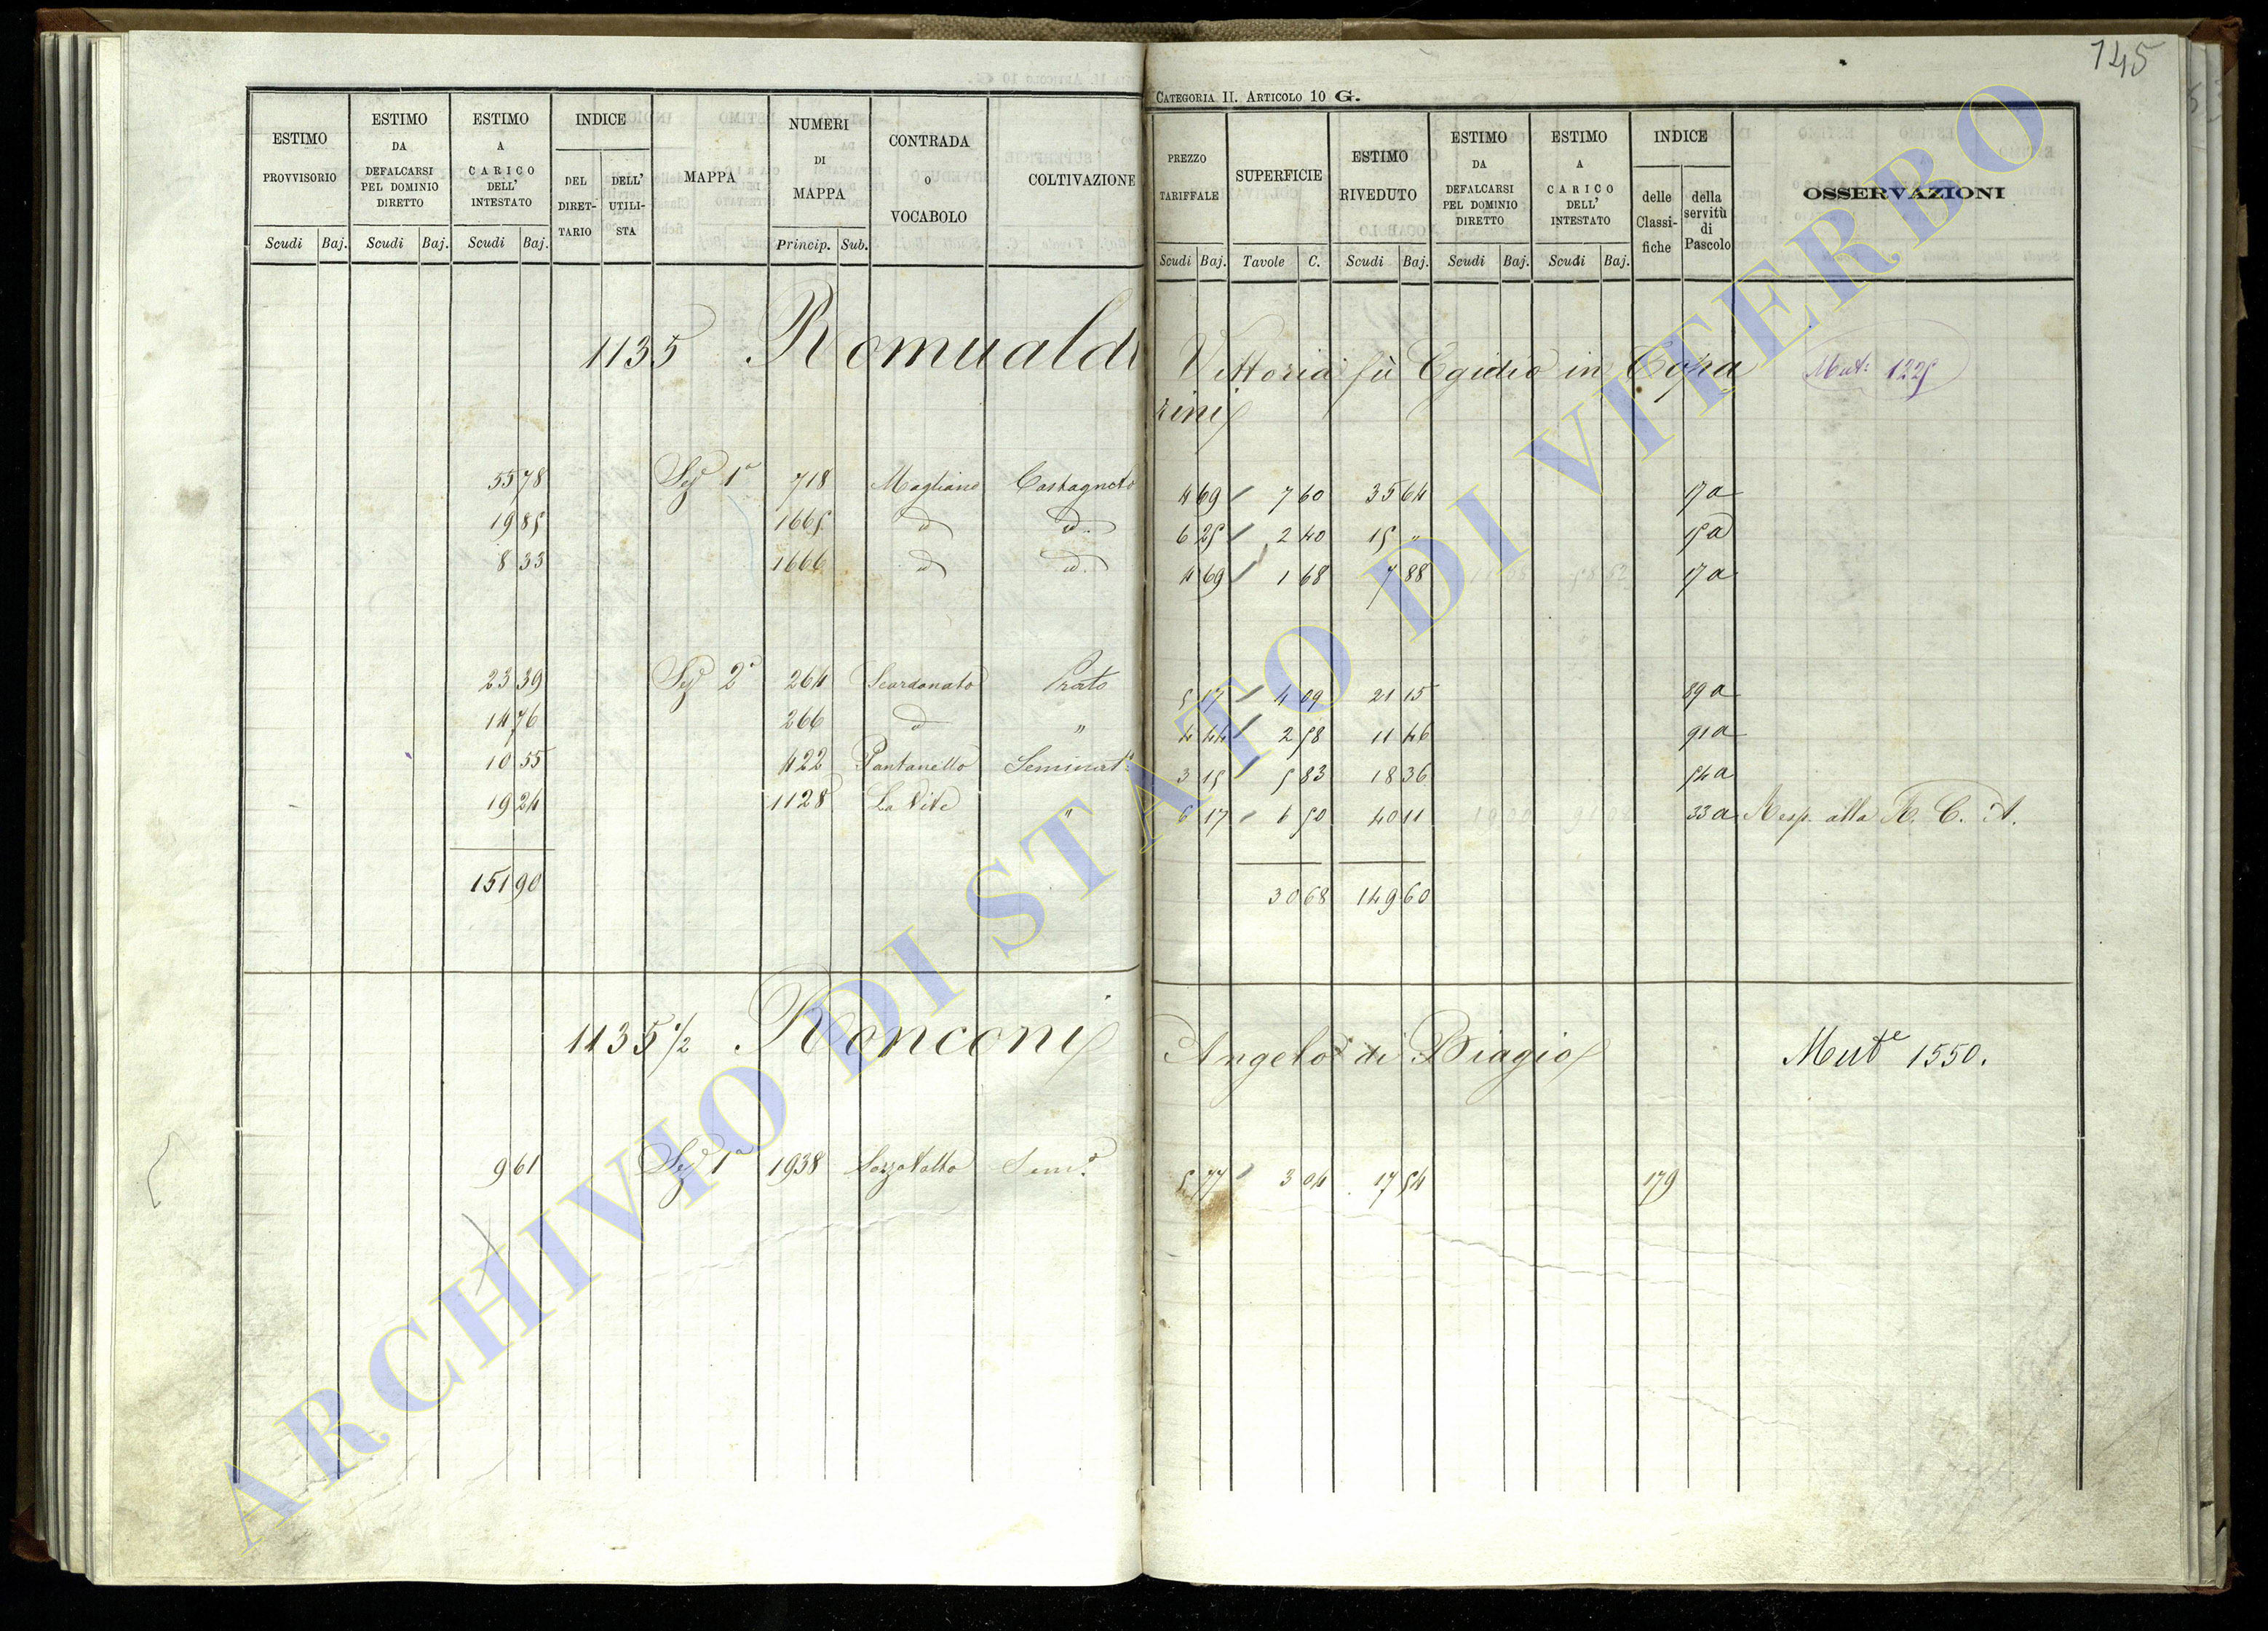 145
CATEGORIA II. ARTICOLO 10 G.
ESTIMO PROVVISORIO Scudi Baj.
ESTIMO DA DEFALCARSI PEL DOMINIO DIRETTO Scudi Baj.
ESTIMO A CARICO DELL' INTESTATO Scudi Baj.
INDICE DEL DIRET-TARIO DELL' UTILI-STA
MAPPA
NUMERI DI MAPPA Princip. Sub.
CONTRADA O VOCABOLO
COLTIVAZIONE
PREZZO TARIFFALE Scudi Baj.
SUPERFICIE Tavole C.
ESTIMO RIVEDUTO Scudi Baj.
ESTIMO DA DEFALCARSI PEL DOMINIO DIRETTO Scudi Baj.
ESTIMO A CARICO DELL' INTESTATO Scudi Baj.
INDICE delle Classi-fiche della servitù di Pascolo
OSSERVAZIONI
1135 Romualdi Vittoria fù Egidio in Copa Mut: 1225
zini
55 78 Sez 1a 718 Magliano Castagneto 4 69 7 60 35 64 17 a
19 85 1665 d d. 6 25 2 40 15 " 15 a
8 33 1666 d d. 4 69 1 68 7 88 17 a
23 39 Sez 2a 264 Scardonato Prato 5 17 4 09 21 15 89 a
14 76 266 d " 4 44 2 58 11 46 91 a
10 55 422 Pantanello Seminato 3 15 5 83 18 36 54 a
19 24 1128 La Vite " 6 17 6 50 40 11 33 a Resp. alla R. C. A.
151 90 30 68 149 60
1135 1/2 Ronconi Angelo di Biagio Mute 1550.
9 61 Sez 1a 1938 Sem.o 5 77 3 04 17 54 179
ARCHIVIO DI STATO DI VITERBO